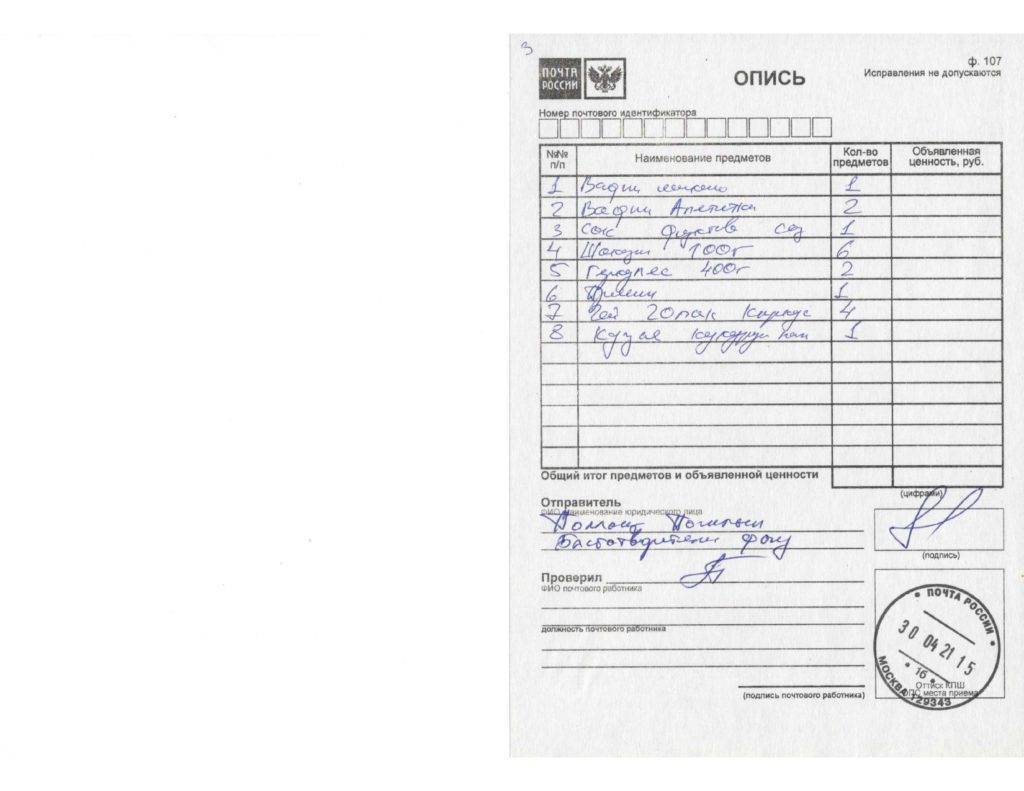 3
ПОЧТА РОССИИ
ОПИСЬ
ф. 107
Исправления не допускаются
Номер почтового идентификатора
№№ п/п Наименование предметов Кол-во предметов Объявленная ценность, руб.
1 Вафли 1
2 Вафли 2
3 Сок 1
4 Шоколад 100г 6
5 Геркулес 400г 2
6 1
7 Чай 20пак 4
8 1
Общий итог предметов и объявленной ценности
(цифрами)
Отправитель
ФИО/наименование юридического лица
Благотворительн фонд
(подпись)
Проверил
ФИО почтового работника
должность почтового работника
(подпись почтового работника)
ПОЧТА РОССИИ
30 04 21 15
16
МОСКВА 129343
Оттиск КПШ
ОПС места приема